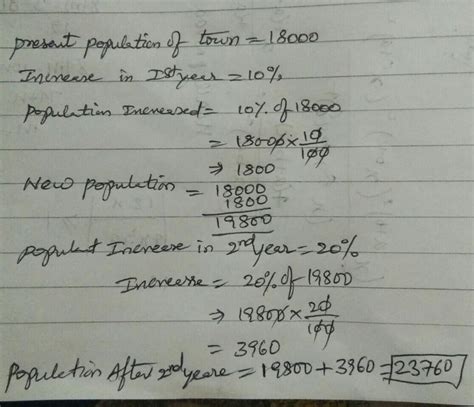 present population of town = 18000
Increase in Ist year = 10%
Population Increased = 10% of 18000
= 18000 × 10/100
⇒ 1800
New population = 18000
1800
19800
Populat Increase in 2nd year = 20%
Increase = 20% of 19800
⇒ 19800 × 20/100
= 3960
Population After 2nd years = 19800 + 3960 = 23760